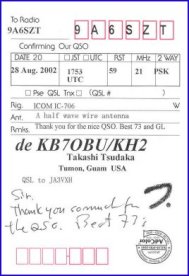 To Radio
9A6SZT 9A6SZT
Confirming Our QSO
DATE 20 □JST □UTC RST MHz 2 WAY
28 Aug. 2002 1753 UTC 59 21 PSK
□ Pse QSL Tnx □ (QSL # )
Rig. ICOM IC-706 W
Ant. A half wave wire antenna
Rmks. Thank you for the nice QSO. Best 73 and GL
de KB7OBU/KH2
Takashi Tsudaka
Tumon, Guam USA
QSL to JA3VXH
Sir.
Thank you so much for
the QSO. Best 73's